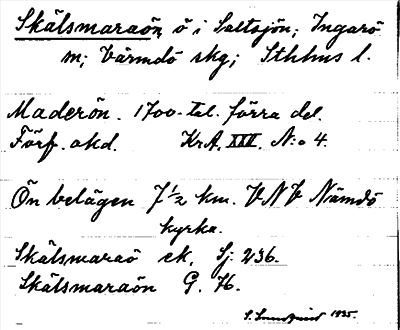 Skälsmaraön, ö i Saltsjön; Ingarö
m; Värmdö skg; Sthlms l.
Maderön. 1700-tal. förra del.
Förf. okd. KrA. XXII. N:o 4.
Ön belägen 7½ km. VNV Nämdö
kyrka.
Skälsmaraö ek. Sj. 236.
Skälsmaraön G. 76.
1935.